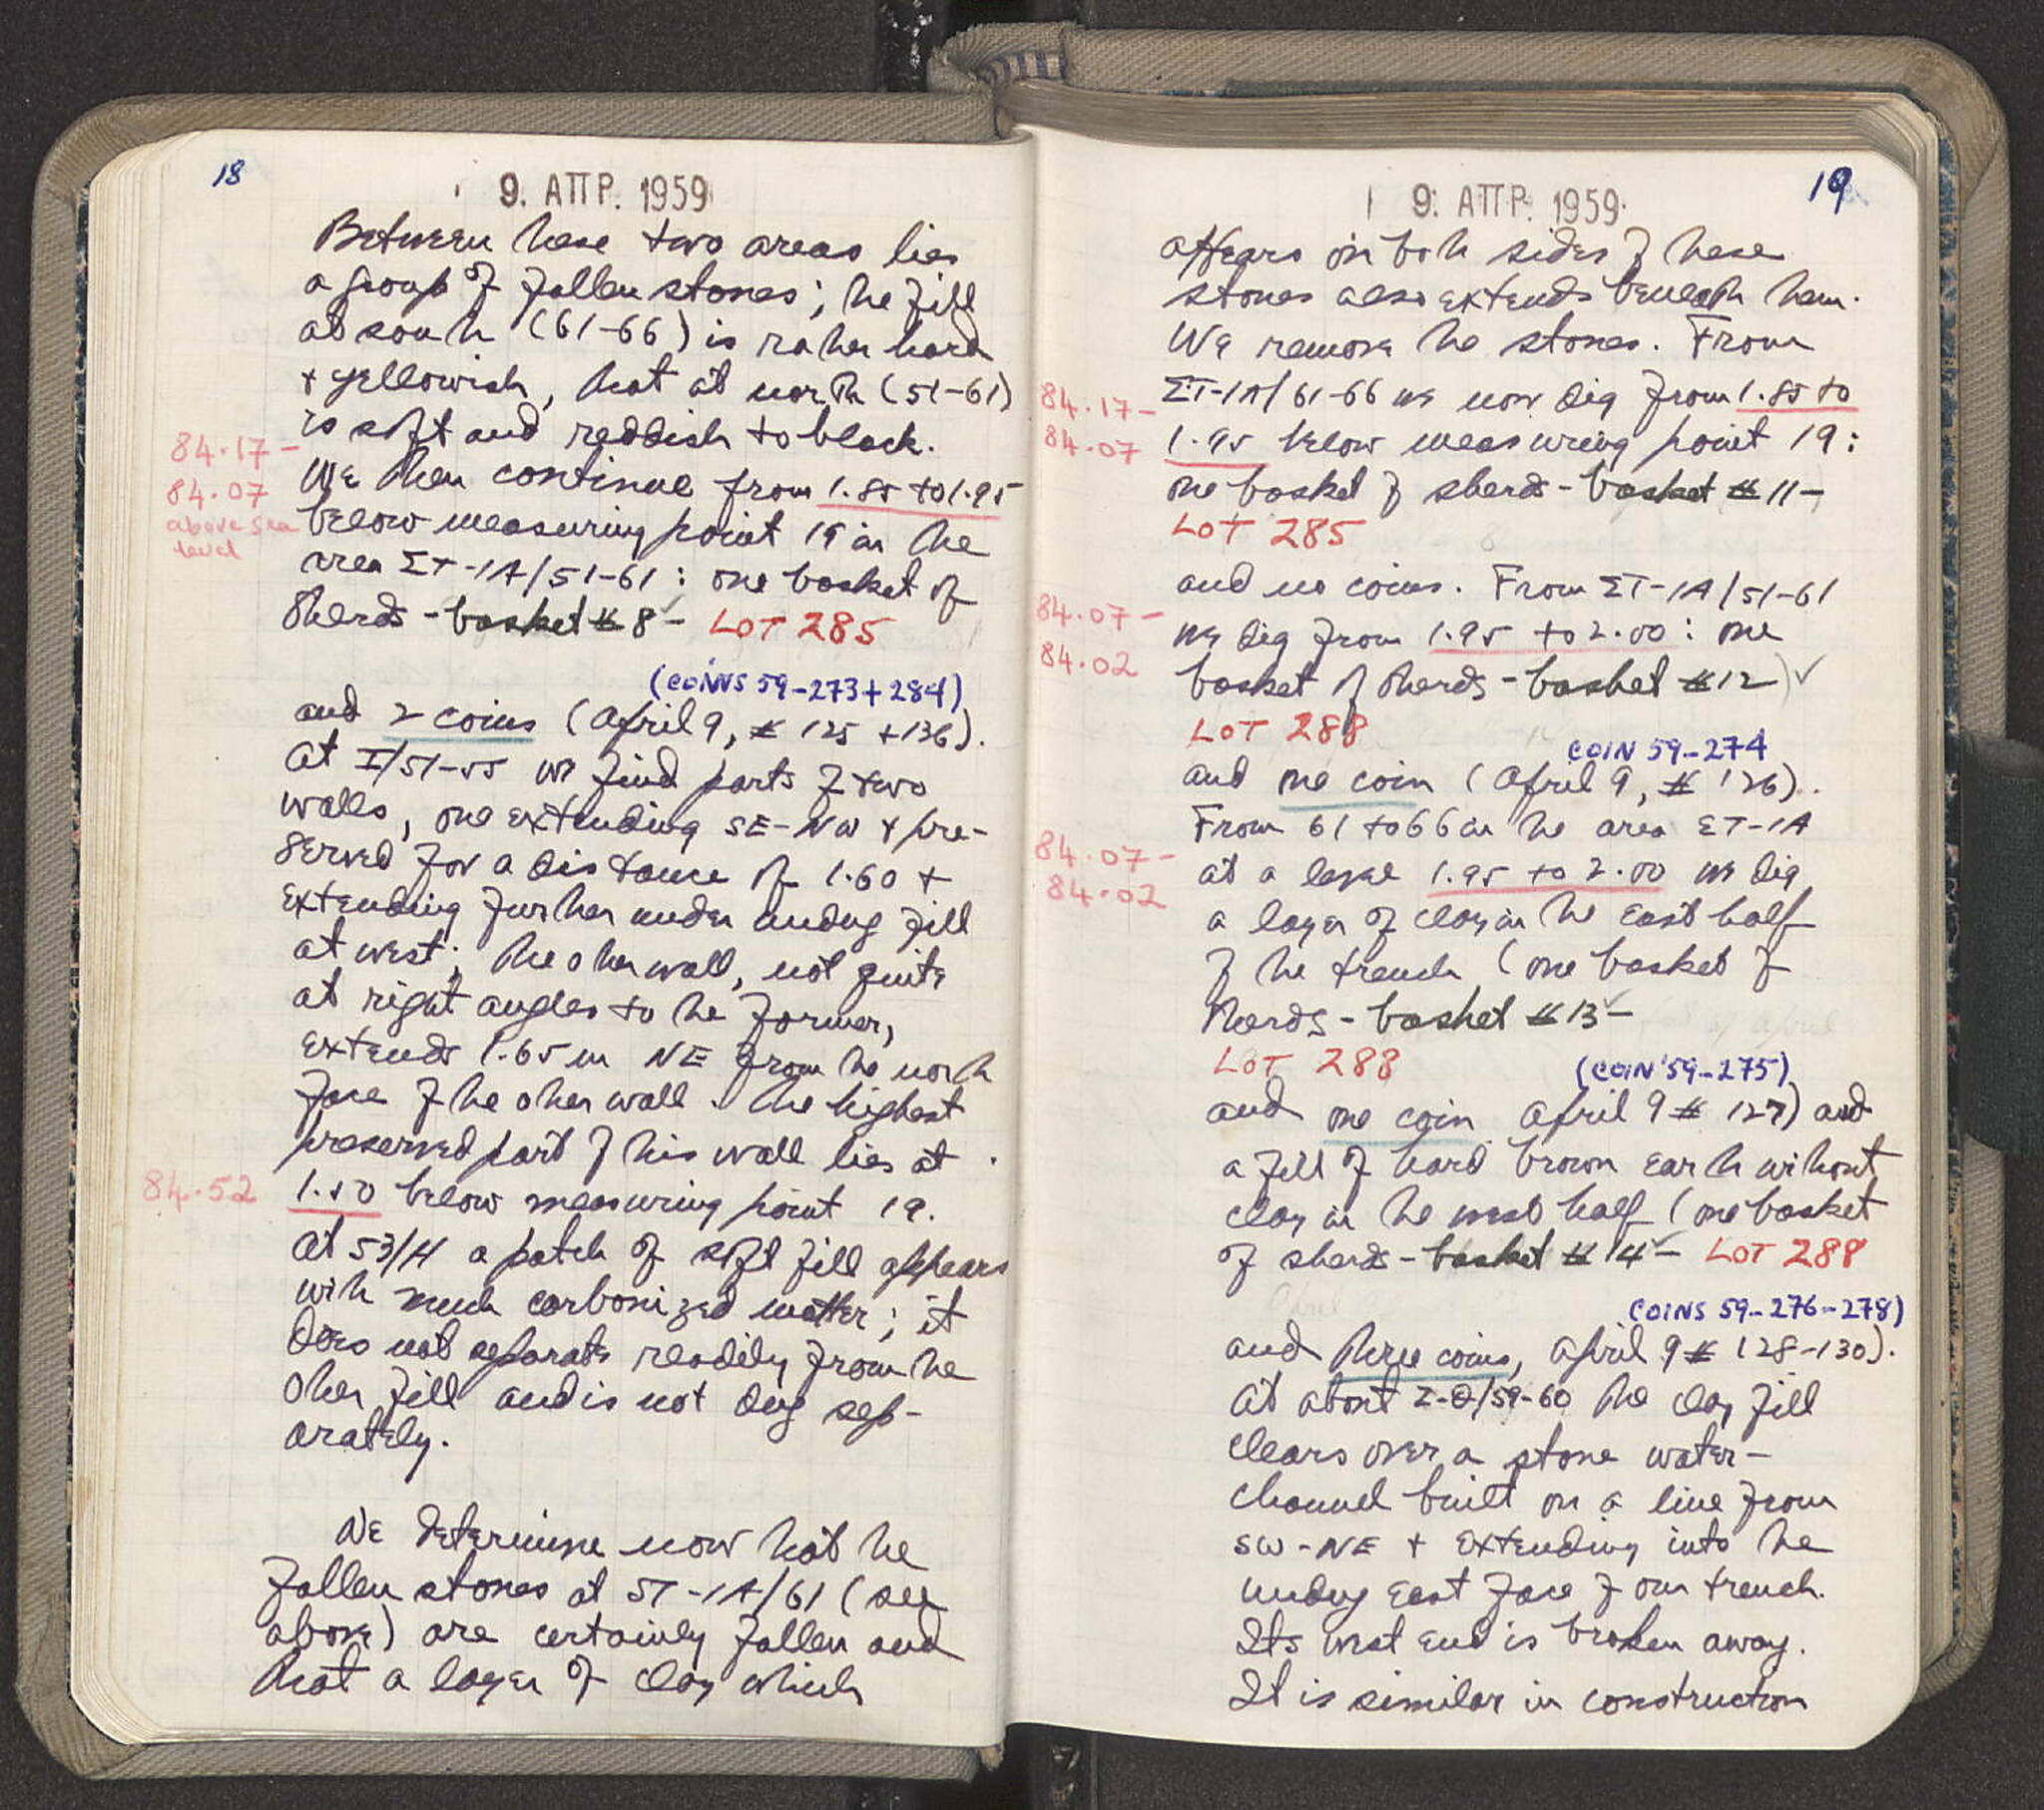 18
9. ΑΠΡ. 1959
Between these two areas lies
a group of fallen stones; the fill
at south (61-66) is rather hard
+ yellowish, that at north (51-61)
is soft and reddish to black.
84.17-
84.07
above sea
level
We then continue from 1.85 to 1.95
below measuring point 19 in the
area ΣΤ-ΙΑ/51-61: one basket of
sherds - basket #8 - LOT 285
(COINS 59-273+284)
and 2 coins (April 9, # 125 + 136).
At I/51-55 we find parts of two
walls, one extending SE-NW + pre-
served for a distance of 1.60 +
extending further under undug fill
at west; the other wall, not quite
at right angles to the former,
extends 1.65 m NE from the north
face of the other wall. The highest
preserved part of this wall lies at
84.52
1.50 below measuring point 19.
At 53/H a patch of soft fill appears
with much carbonized matter; it
does not separate readily from the
other fill and is not dug sep-
arately.
We determine now that the
fallen stones at ΣΤ-ΙΑ/61 (see
above) are certainly fallen and
that a layer of clay which
19
9. ΑΠΡ. 1959
appears on both sides of these
stones also extends beneath them.
We remove the stones. From
84.17-
84.07
ΣΤ-ΙΑ/61-66 we now dig from 1.85 to
1.95 below measuring point 19:
one basket of sherds - basket #11-
LOT 285
and no coins. From ΣΤ-ΙΑ/51-61
84.07-
84.02
we dig from 1.95 to 2.00: one
basket of sherds - basket #12) ✓
LOT 288
COIN 59-274
and one coin (April 9, # 126).
From 61 to 66 in the area ΣΤ-ΙΑ
84.07-
84.02
at a level 1.95 to 2.00 we dig
a layer of clay in the east half
of the trench (one basket of
sherds - basket #13-
LOT 288
(COIN 59-275)
and one coin April 9 # 127) and
a fill of hard brown earth without
clay in the west half (one basket
of sherds - basket #14- LOT 288
(COINS 59-276-278)
and three coins, April 9 # 128-130).
At about Ζ-Θ/59-60 the clay fill
clears over a stone water-
channel built on a line from
SW-NE + extending into the
undug east face of our trench.
Its west end is broken away.
It is similar in construction